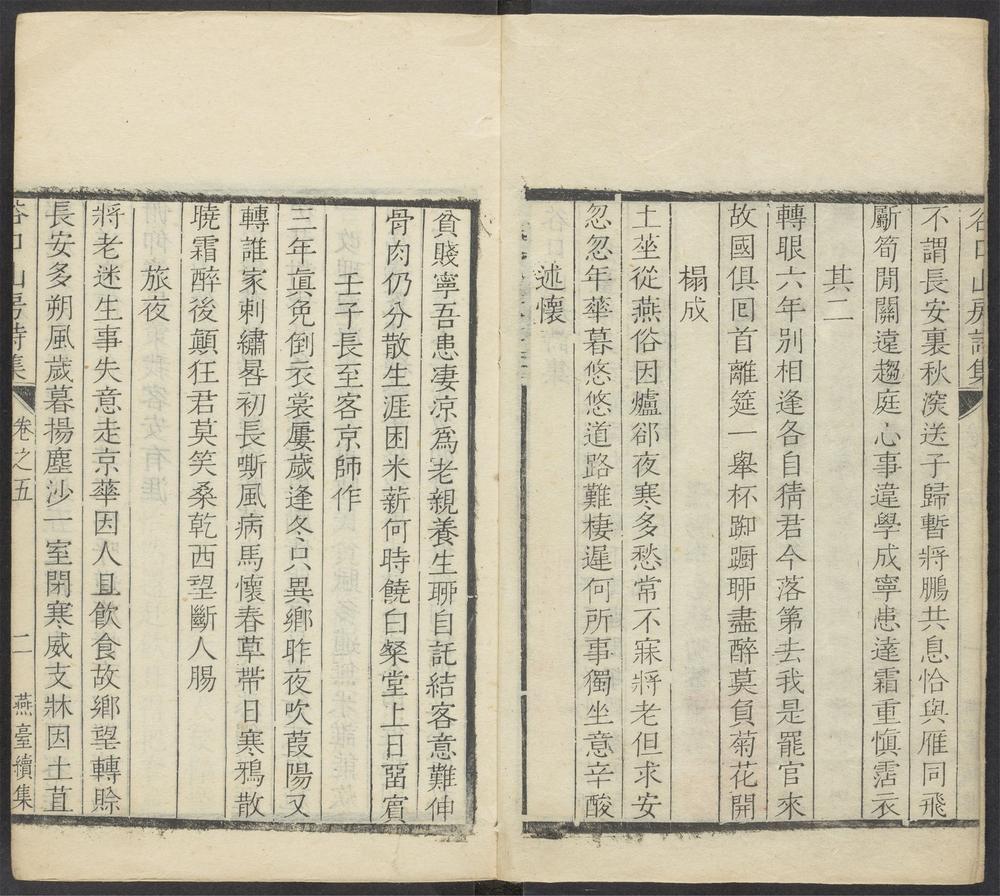 谷口山房詩集
不謂長安裏秋深送子歸暫將鵬共息恰與雁同飛
斸筍閒關遠趨庭心事違學成寧患達霜重慎霑衣
其二
轉眼六年別相逢各自猜君今落第去我是罷官來
故國俱囘首離筵一舉杯踟躕聊盡醉莫負菊花開
榻成
土坐從燕俗因爐郤夜寒多愁常不寐將老但求安
忽忽年華暮悠悠道路難棲遲何所事獨坐意辛酸
述懷
貧賤寧吾患凄凉爲老親養生聊自託結客意難伸
骨肉仍分散生涯困米薪何時饒白粲堂上日畱賓
壬子長至客京師作
三年眞免倒衣裳屢歲逢冬只異鄉昨夜吹葭陽又
轉誰家刺繡晷初長嘶風病馬懷春草帶日寒鴉散
曉霜醉後顚狂君莫笑桑乾西望斷人腸
旅夜
將老迷生事失意走京華因人且飮食故鄉望轉賒
長安多朔風歲暮揚塵沙一室閉寒威支牀因土苴
谷口山房詩集 卷之五 二 燕臺續集